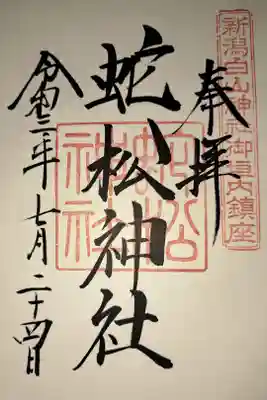 新潟白山神社御境内鎮座
奉拝
蛇松神社
蛇松
神社
令和三年七月二十四日